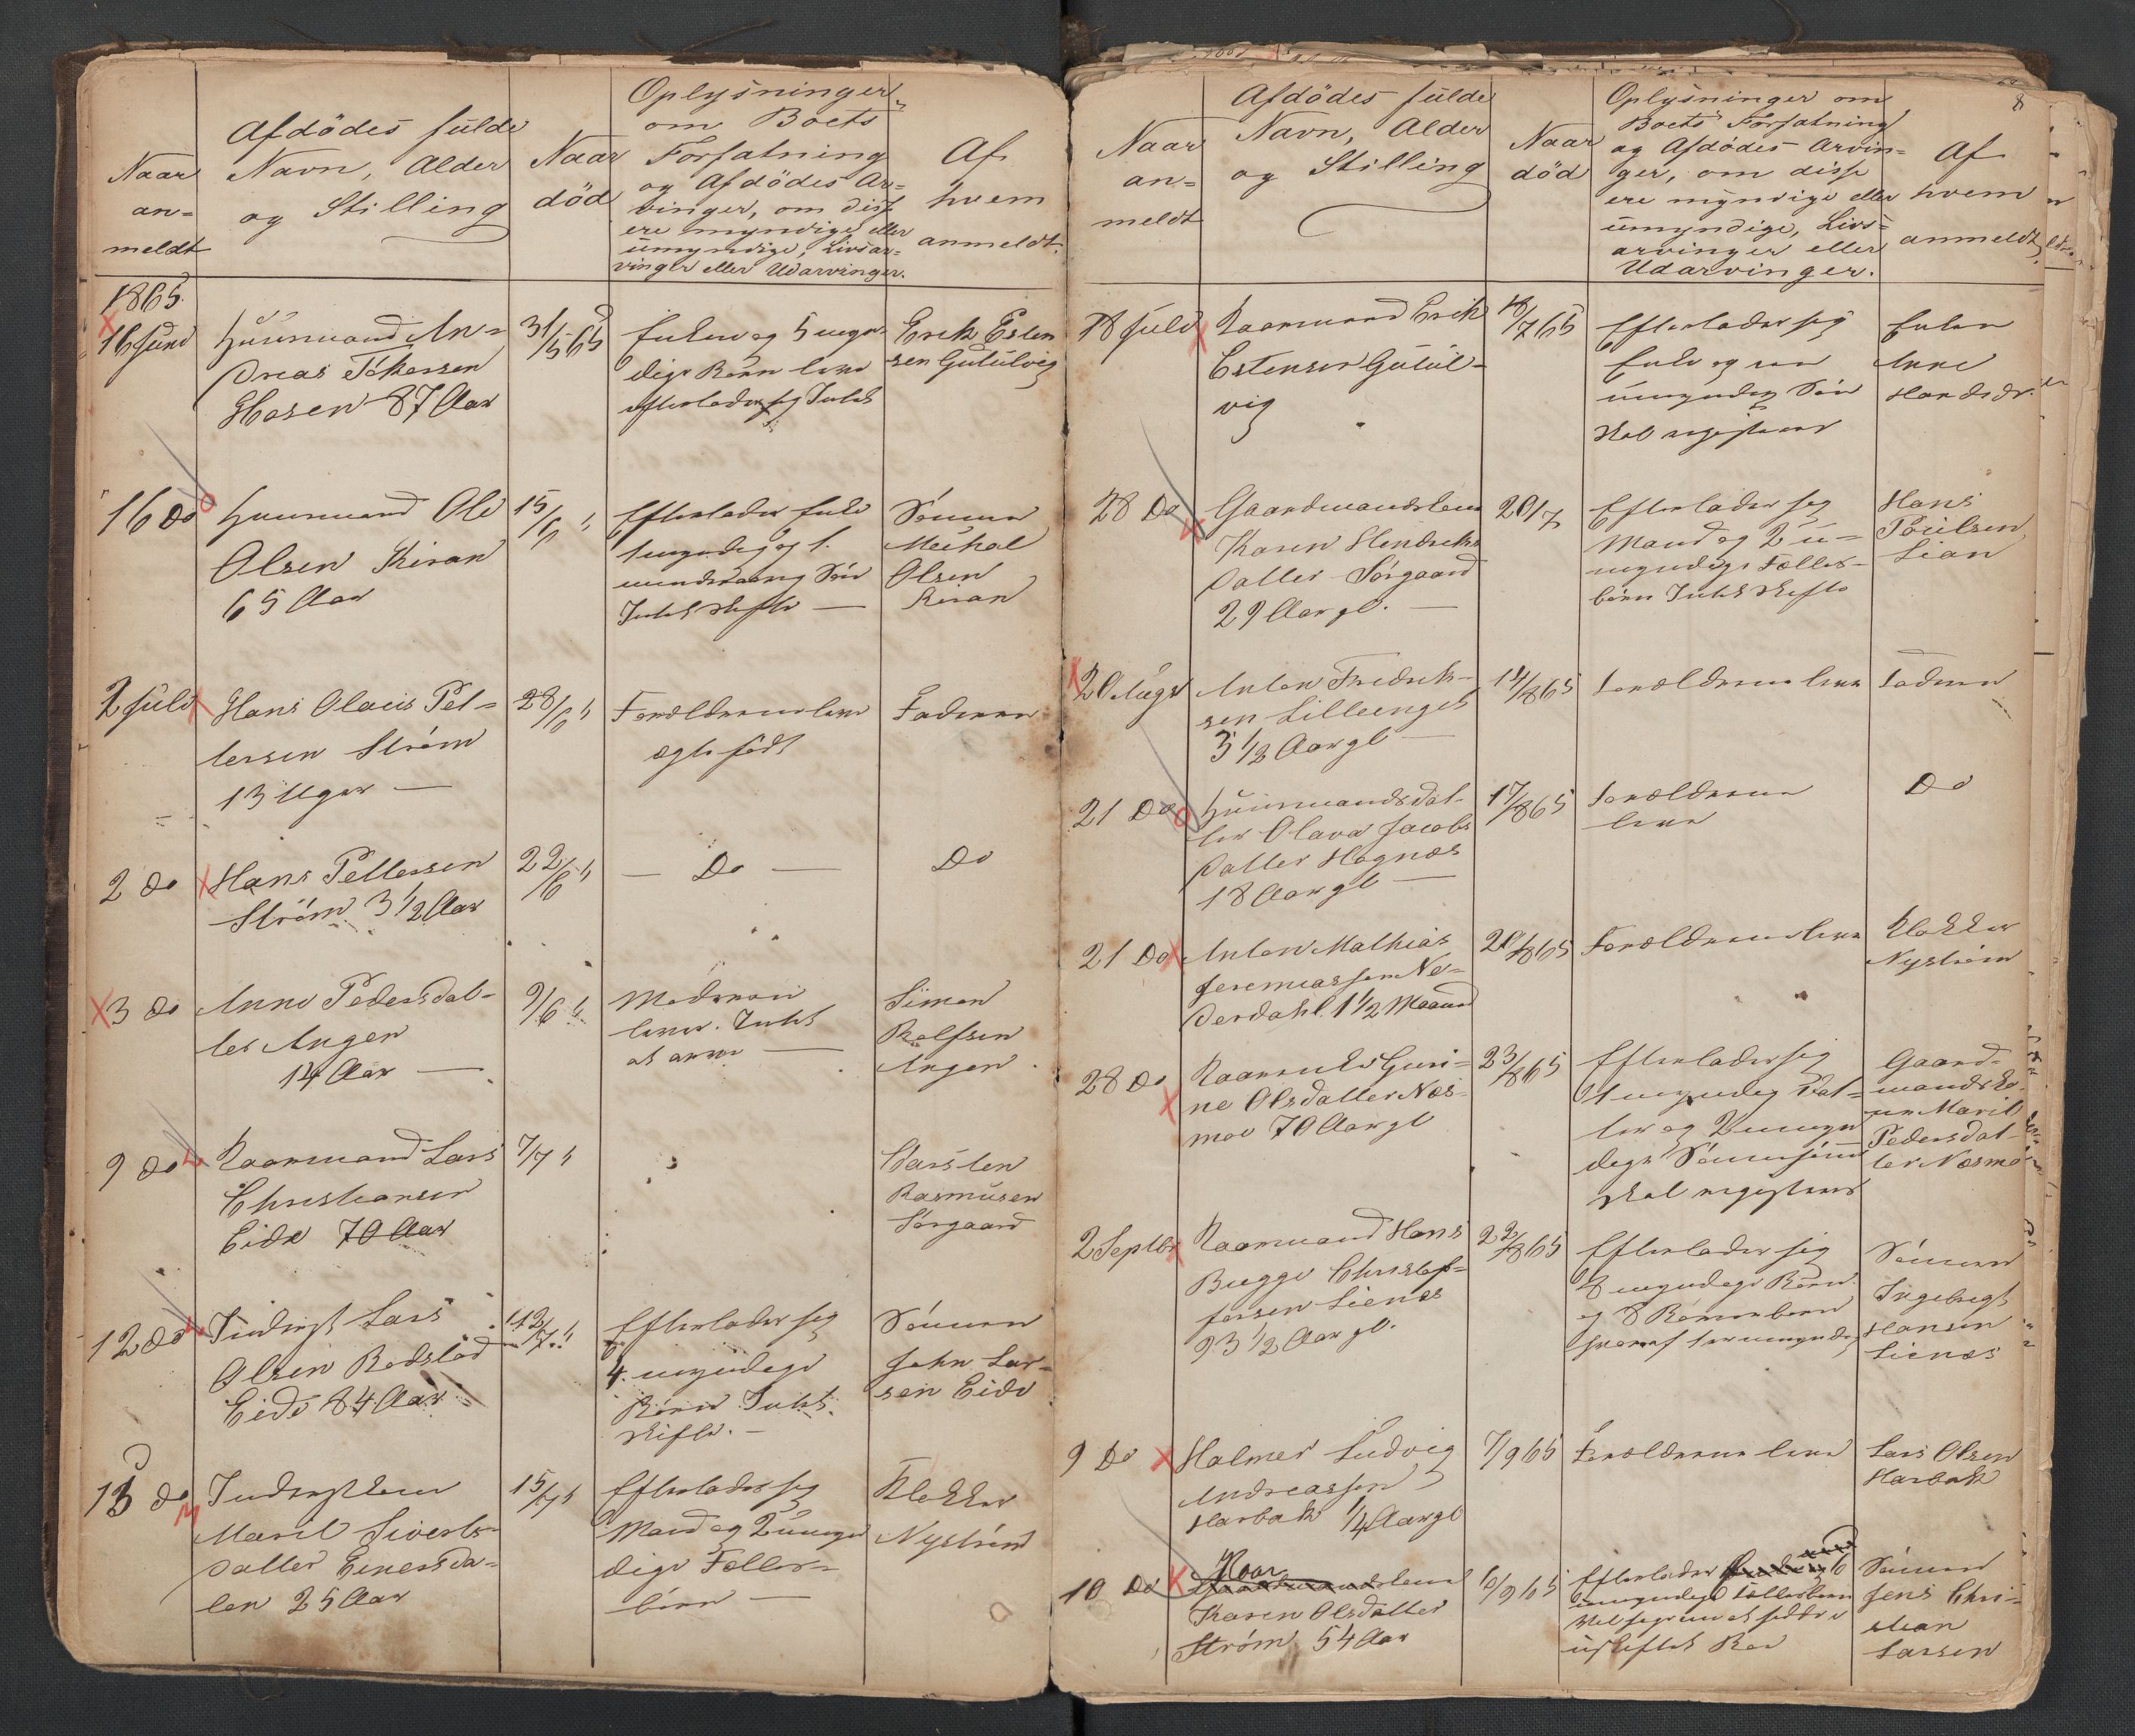 Naar
an-
meldt
Afdödes fulde
Navn, Alder
og Stilling
Naar
död
Oplysninger
om Boets
Forfatning
og Afdödes Ar-
vinger, om disse
ere myndige eller
umyndige, Livsar-
vinger eller Udarvinger.
Af
hvem
anmeldt.
1865.
16 Juni
Huusmand An-
dreas Tökersen
Hosen 87 Aar
31/5 65
Enken og 5 myn-
dige Börn
efterlader sig Intet
Erik Esten
sen Gutulvig
16 Do
Huusmand Ole
Olsen Kiran
65 Aar
15/6 "
Efterlader Enke
1 myndig og 1
mindreaarig Sön
Intet Skifte —
Sönnen
Meihal
Olsen
Kiran
2 Juli
Hans Olaus Pet-
tersen Ström
13 Uger —
28/6 "
Forældrene leve
ægte födt
Faderen
2 Do
Hans Pettersen
Ström 3 1/2 Aar
22/6 "
— Do —
Do
3 Do
Anne Pedersdat-
ter Angen
14 Aar —
9/6 "
Moderen
lever. Intet
at arve —
Simon
Rolfsen
Angen
9 Do
Kaarmand Lars
Christiansen
Eide 70 Aar
7/7 "
Carsten
Rasmusen
Sörgaard
12 Do
Inderst Lars
Olsen Bodslad
Eide 84 Aar
12/7 "
Efterlader sig
4 myndige
Börn Intet
Skifte. —
Sönnen
John Lar-
sen Eide
13 Do
Inderstkone
Marit Siverts-
datter Einersda-
len 25 Aar
15/7 "
Efterlader sig
Mand og 2 umyn
dige Fælles-
börn —
Klokker
Nyström
8
Naar
an-
meldt
Afdödes fulde
Navn, Alder
og Stilling
Naar
död
Oplysninger om
Boets Forfatning
og Afdödes Arvin-
ger, om disse
ere myndige eller
umyndige, Livs-
arvinger eller
Udarvinger.
Af
hvem
anmeldt.
18 Juli
Kaarmand Erik
Estensen Gutul-
vig
18/7 65
Efterlader sig
Enke og en
umyndig Sön
skal registeres
Enken
Anne
Hansdr.
28 Do
Gaardmandskone
Karen Hendriks
datter Sörgaard
29 Aar gl. —
20/7
Efterlader sig
Mand og 2 u-
myndige Fælles-
börn Intet Skifte
Hans
Poulsen
Lian
20 Augs
Anton Fredrik-
sen Lilleenget
3 1/2 Aar gl —
14/8 65
Forældrene leve
Faderen
21 Do
Huusmandsdat-
ter Olava Jacobs
datter Hognæs
18 Aar gl —
17/8 65
Forældrene
leve
Do
21 Do
Anton Mathias
Jeremiassen Ne-
derdahl 1 1/2 Maaned
20/8 65
Forældrene leve
Klokker
Nyström
28 Do
Kaarenke Guri-
ne Olsdatter Næs-
moe 70 Aar gl
23/8 65
Efterlader sig
1 myndig Dat-
ter og 2 myn
dige Sönner
skal registeres
Gaard-
mandsko-
ne Marit
Pedersdat-
ter Næsmo
2 Septbr
Kaarmand Hans
Bugge Christof-
fersen Lienæs
93 1/2 Aar gl.
22/8 65
Efterlader sig
8 myndige Börn
og 8 Börnebörn
hvoraf 1 er umyndig
Sönnen
Ingebrigt
Hansen
Lienæs
9 Do
Halmer Ludvig
Andreassen
Harbak 1/4 Aar gl
7/9 65
Forældrene leve
Lars Olsen
Harbak
10 Do
Kaar
kone
Karen Olsdatter
Ström 54 Aar
6/9 65
Efterlader 6
umyndige Fællesbörn
uskiftet Boe
Sönnen
Jens Chri-
stian
Larsen